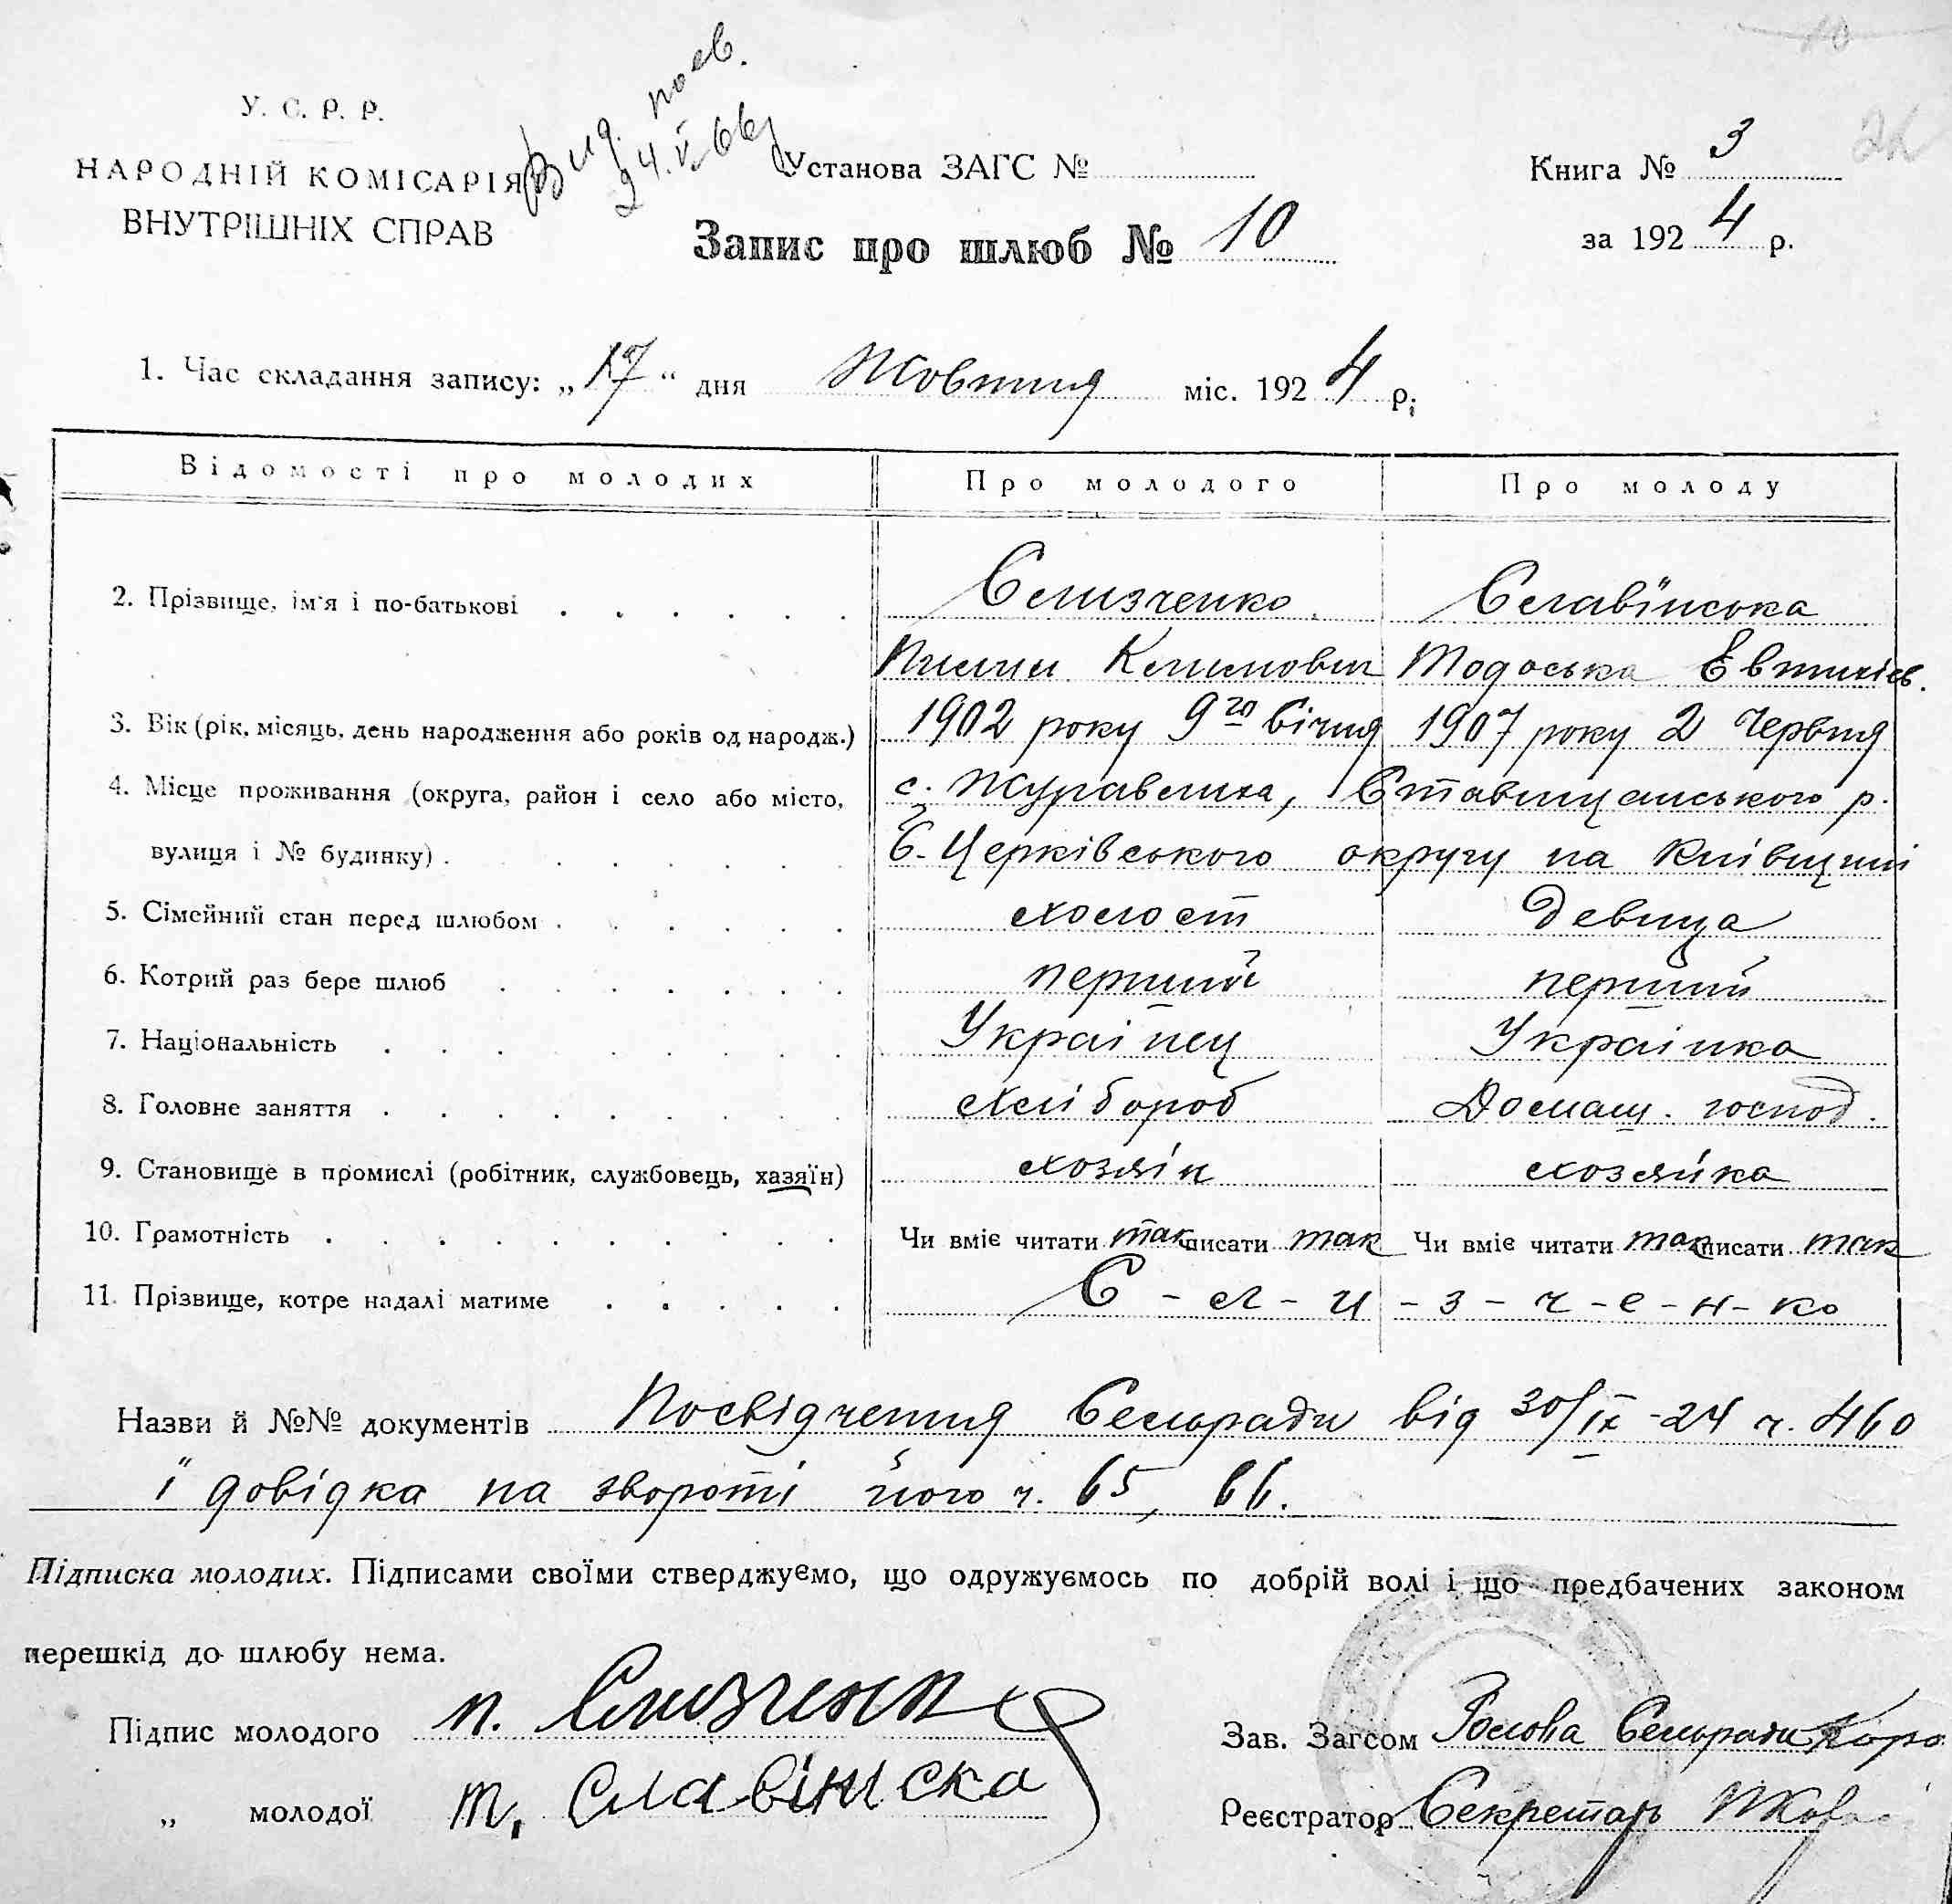 У. С. Р. Р.
НАРОДНІЙ КОМІСАРІЯ
ВНУТРІШНІХ СПРАВ
Вид. посв.
24.V.66
Установа ЗАГС №
Книга № 3
за 1924 р.
Запис про шлюб № 10
1. Час складання запису: „17“ дня Жовтня міс. 1924 р.
Відомості про молодих Про молодого Про молоду
2. Прізвище, ім'я і по-батькові Слизченко Славінська
Пилип Климович Тодоська Евтихієв.
3. Вік (рік, місяць, день народження або років од народж.) 1902 року 9го Січня 1907 року 2 Червня
4. Місце проживання (округа, район і село або місто, с. Журавлиха, Ставищанського р.
вулиця і № будинку) Б.-Церківського округу на Київщині
5. Сімейний стан перед шлюбом холост девица
6. Котрий раз бере шлюб перший перший
7. Національність Украінец Украінка
8. Головне заняття хлібороб Домащ. господ.
9. Становище в промислі (робітник, службовець, хазяїн) хозяін хозяйка
10. Грамотність Чи вміє читати так писати так Чи вміє читати так писати так
11. Прізвище, котре надалі матиме С - л - и - з - ч - е - н - ко
Назви й №№ документів Посвідчення Сельради від 30/IX -24 ч. 460
і довідка на звороті його ч. 65, 66.
Підписка молодих. Підписами своїми стверджуємо, що одружуємось по добрій волі і що предбачених законом
перешкід до шлюбу нема.
Підпис молодого П. Слизченко
„ молодої Т. Славінска
Зав. Загсом Голова Сельради
Реєстратор Секретарь